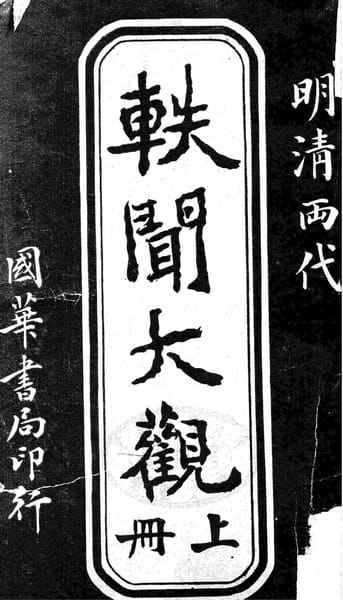 明清両代
軼聞大觀
上冊
國華書局印行